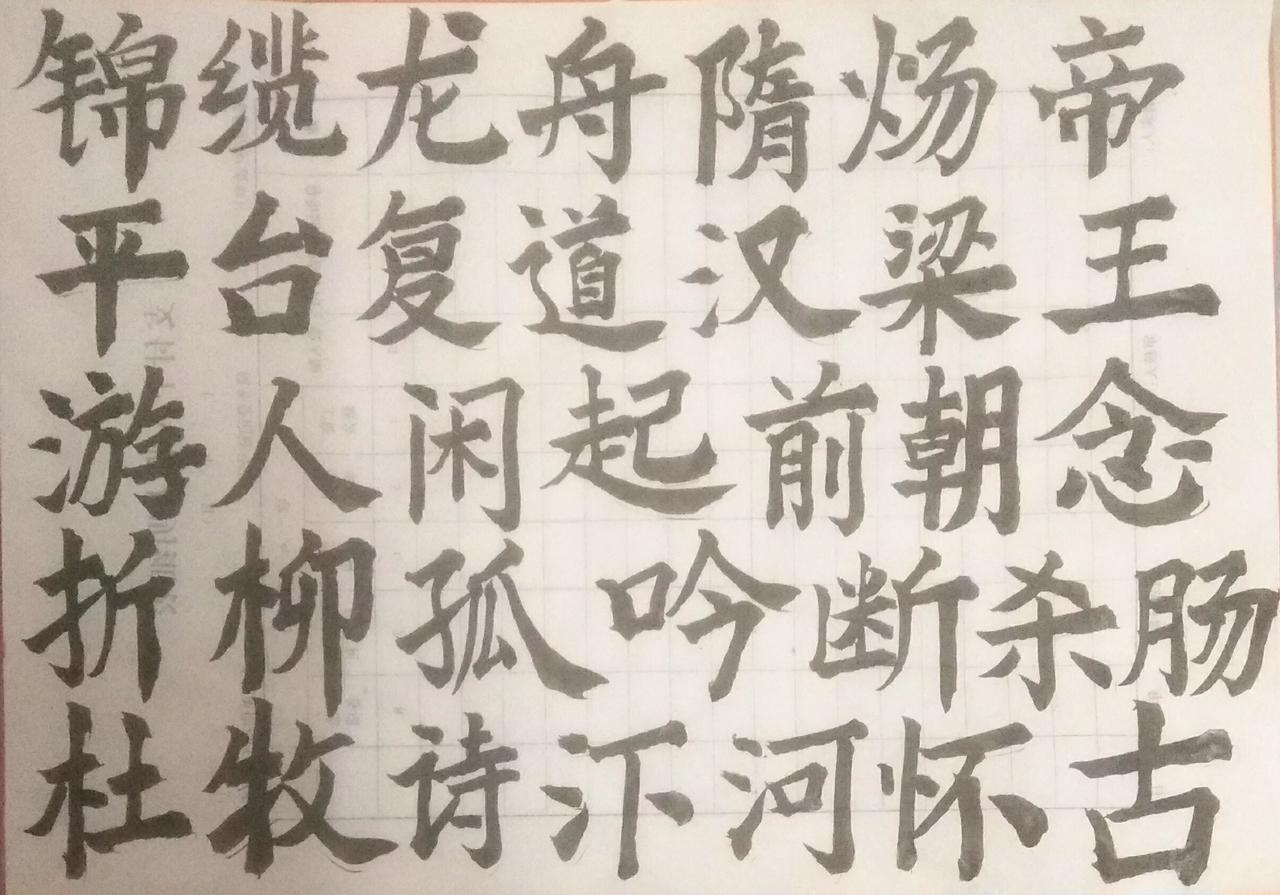 锦缆龙舟隋炀帝
平台复道汉梁王
游人闲起前朝念
折柳孤吟断杀肠
杜牧诗汴河怀古